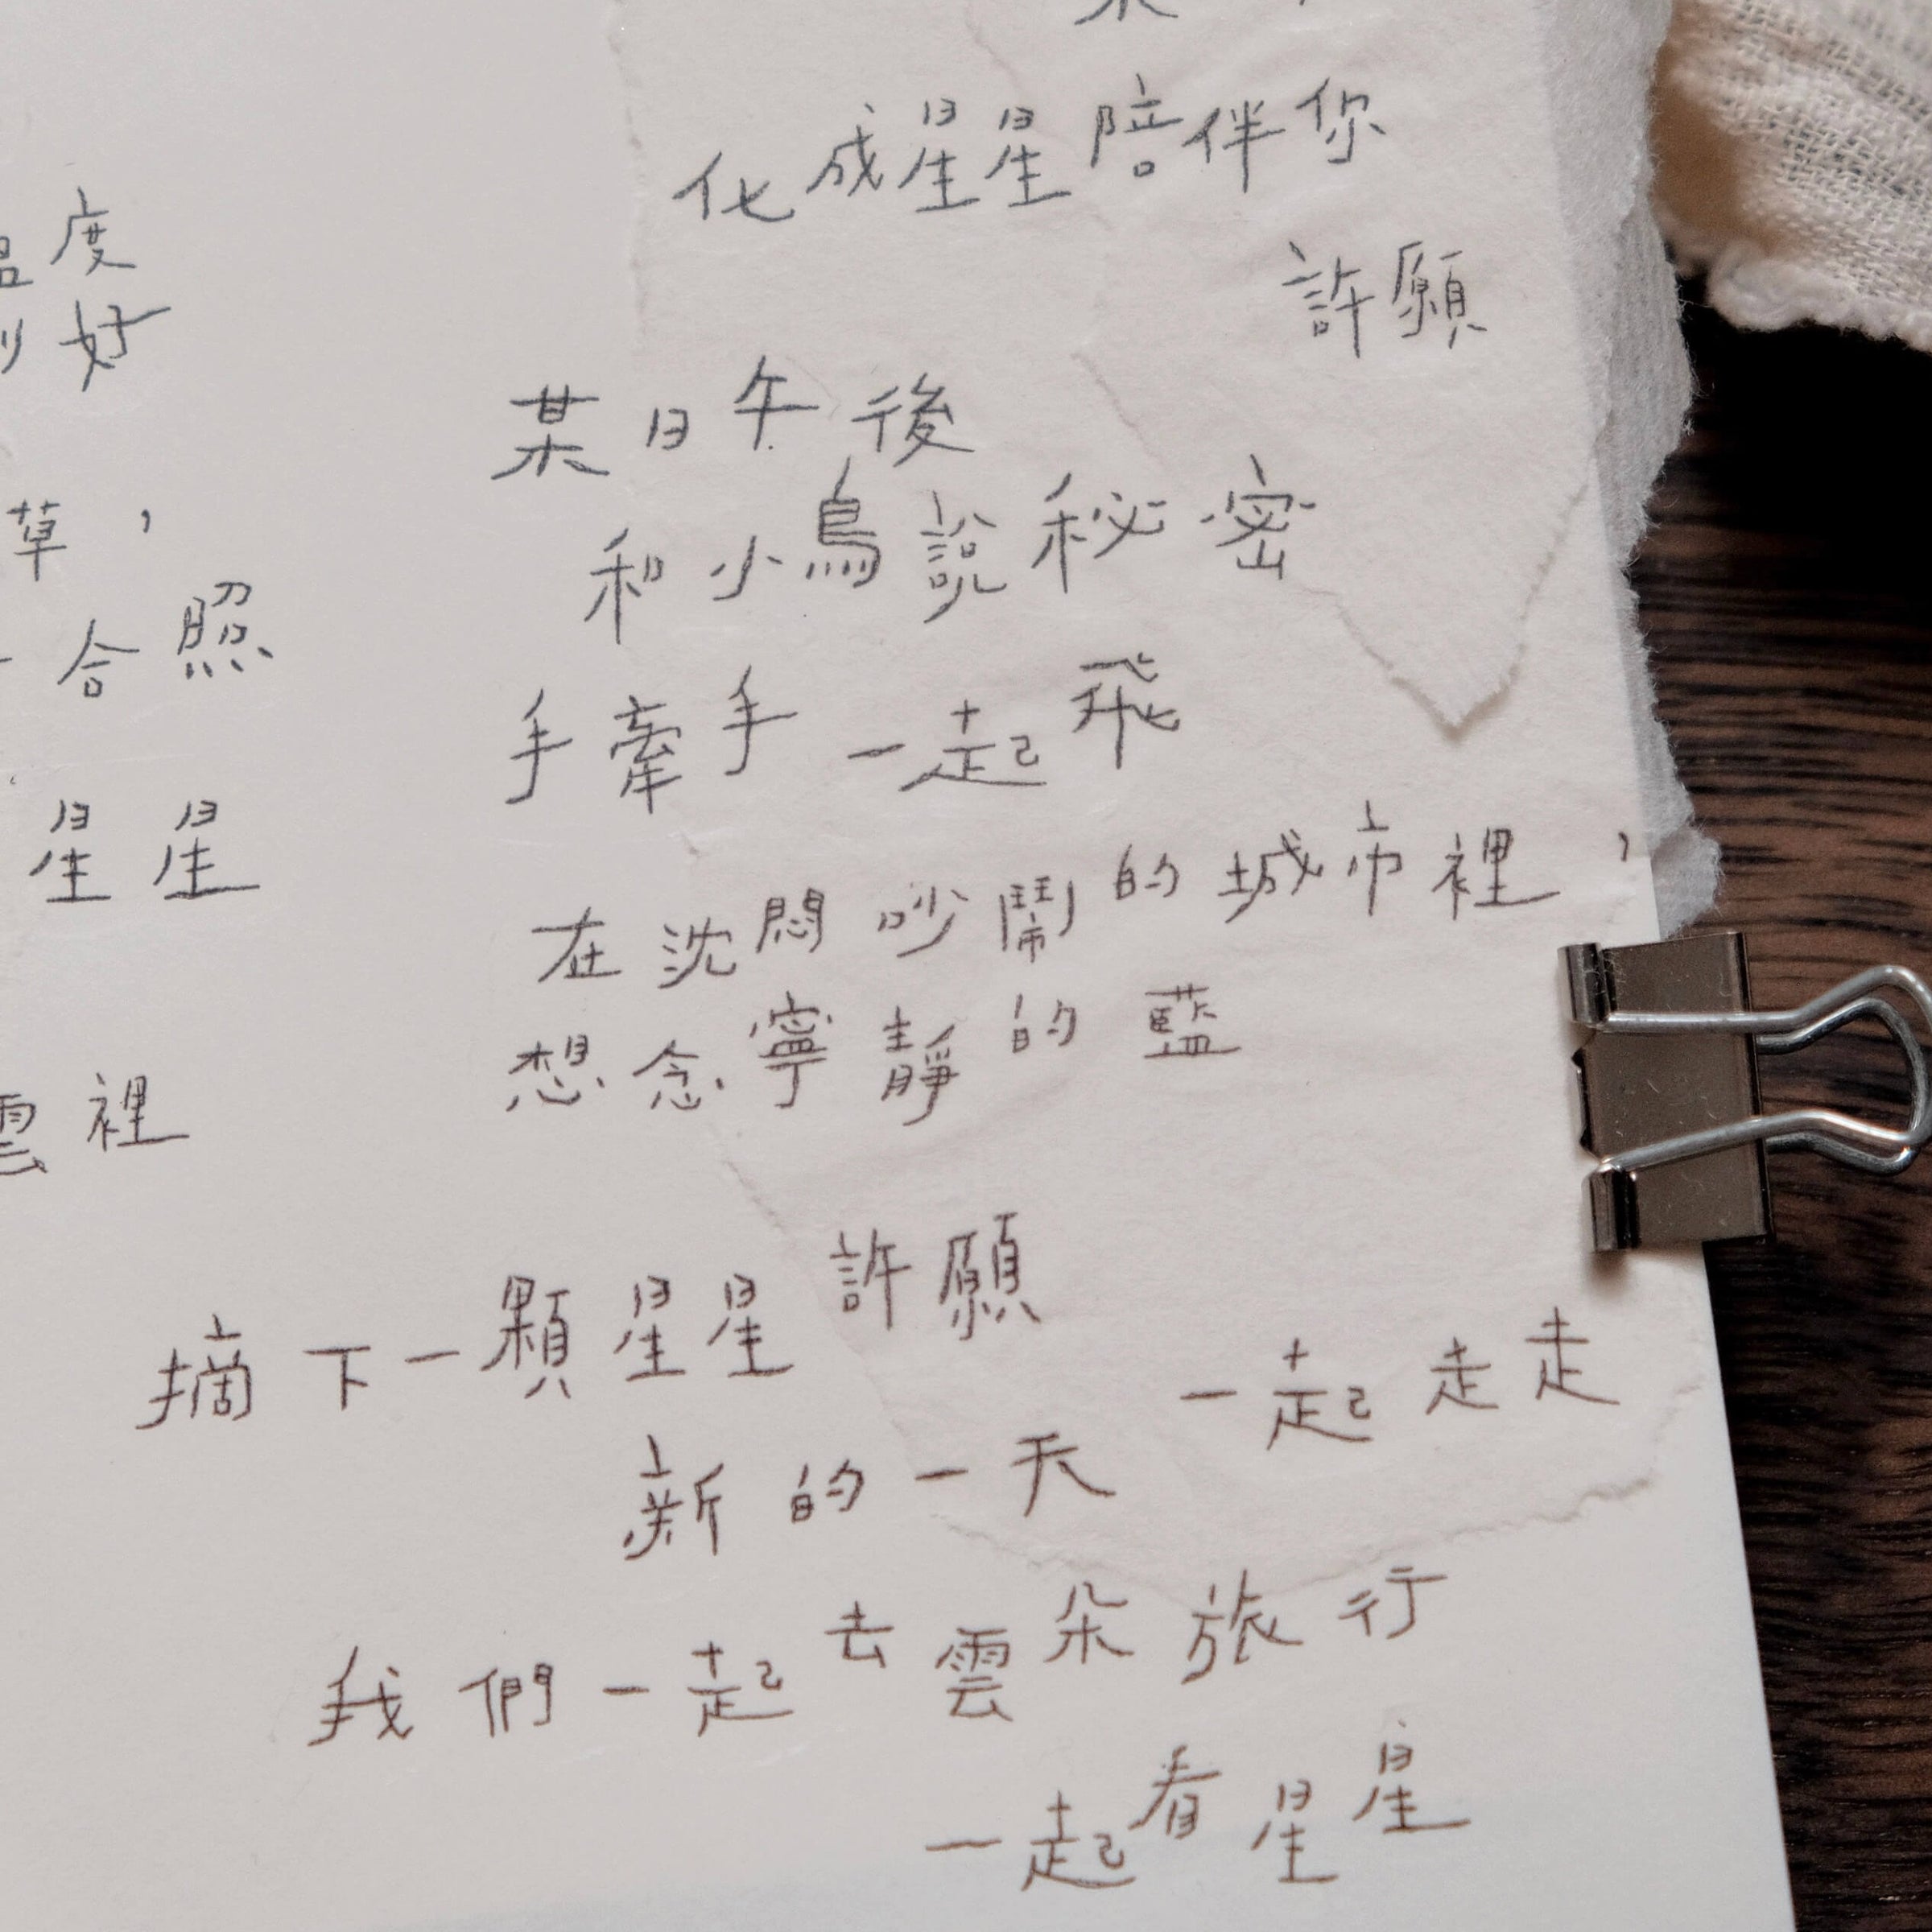 化成星星陪伴你
許願
某日午後
和小鳥說秘密
手牽手一起飛
在沈悶吵鬧的城市裡，
想念寧靜的藍
摘下一顆星星許願
一起走走
新的一天
我們一起去雲朵旅行
一起看星星
度
好
草，
合照
星星
雲裡